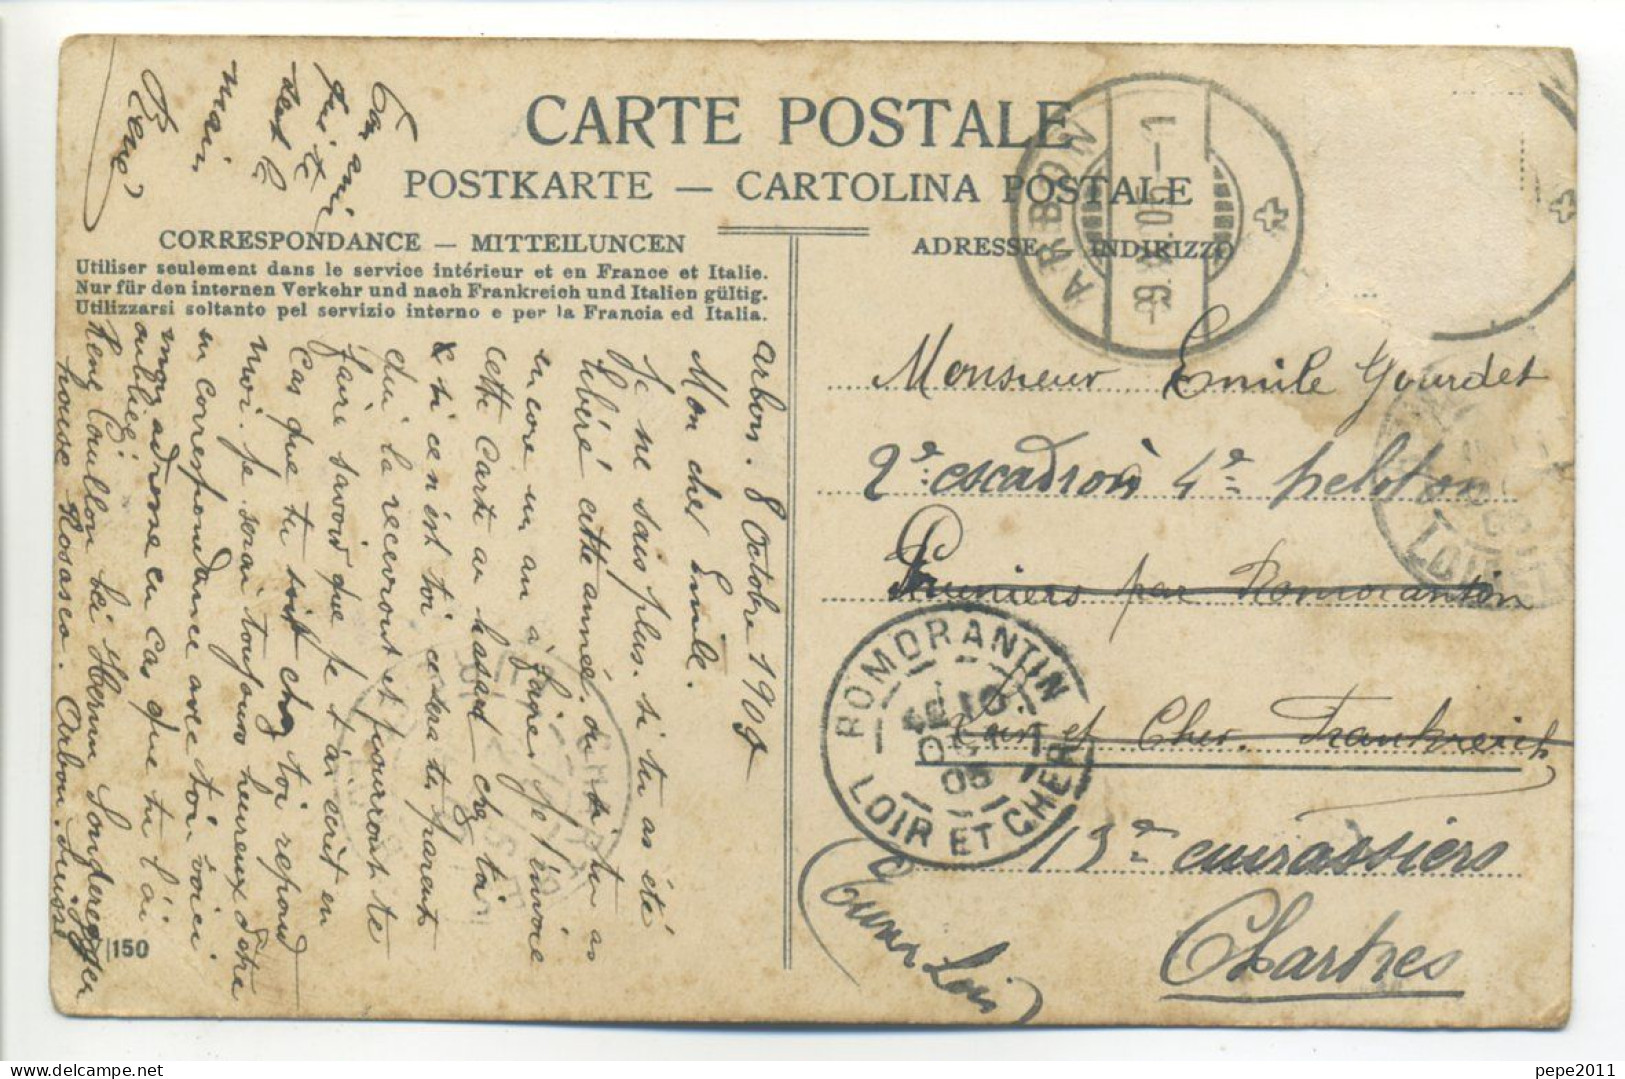 CARTE POSTALE
POSTKARTE — CARTOLINA POSTALE
CORRESPONDANCE — MITTEILUNCEN
ADRESSE - INDIRIZZO
Utiliser seulement dans le service intérieur et en France et Italie.
Nur für den internen Verkehr und nach Frankreich und Italien gültig.
Utilizzarsi soltanto pel servizio interno e per la Francia ed Italia.
Arbon. 8 Octobre 1908
Mon cher Emile.
Je ne sais plus. si tu as été
libéré cette année. ou si tu as
encore un an à faire. Je t'envoie
cette Carte au hasard chez toi
& si ce n'est toi ce sera tes parents
qui la recevront et pourront te
faire savoir que je t'ai écrit en
Cas que tu sois chez toi repond
moi. je serai toujours heureux d'être
en correspondance avec toi voici
mon adresse en cas que tu l'ai
oubliée
René Coullon bei Herrn Sonderegger
house Rosasca. Arbon. Suisse
Ton ami
qui te
sert la
main
René
150
ARBON
-9.X.08.-1
Monsieur Emile Gourdet
2e escadron 4e peloton
Pruniers par Romorantin
Loir et Cher. Frankreich
13e cuirassiers
Chartres
(Eure Loir)
ROMORANTIN
10
OCT
08
LOIR ET CHER
LOIR ET
pepe2011